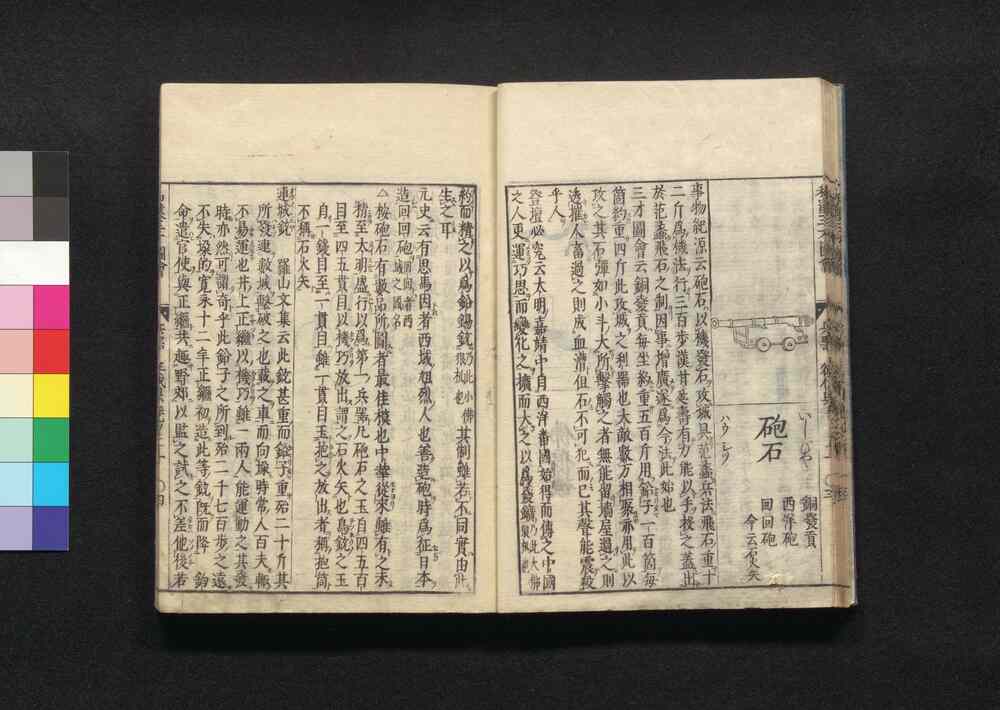 砲石
ハウシヤク
銅發貢
西洋砲
回回砲
今云石火矢
事物紀源云砲石以機發石攻城具范蠡兵法飛石重十
二斤爲機法行三百步漢甘延壽有力能以手投之蓋出
於范蠡飛石之制因事增廣遂爲今法此始也
三才圖會云銅發貢每坐約重五百斤用鉛子一百箇每
箇約重四斤此攻城之利器也大敵數万相聚亦用此以
攻之其石彈如小斗大所擊觸之者無能留墻屋遇之則
透摧人畜遇之則成血漕但石不可犯而已其聲能震殺
乎人
登壇必究云大明嘉靖中自西洋番國始得而傳之中國
之人更運巧思而變化之擴而大之以爲發鑛
約而精之以爲鉛錫銃其制雖若不同實由此
生之耳
元史云有思馬因者西域旭烈人也善造砲時爲征日本
造回回砲
△按砲石有數品所圖者最佳模也中華從來雖有之未
精至大明盛行以爲第一兵器凡砲石之玉自四五百
目至四五貫目以機巧放出謂之石火矢也鳥銃之玉
自一錢目至一貫目雖一貫目玉抱之放出者稱抱筒
不稱石火矢
連城銃 羅山文集云此銃甚重而鉛子重殆二十斤其
所發連數城擊破之也載之車而向壕時常人百夫輙
不易運也井上正繼以機巧雖一兩人能運動之其發
時亦然可謂奇乎此鉛子之所到殆二千七百步之遠
不失垜的寬永十二年正繼初造此等銃既而降 鈞
命遣官使與正繼共趣野郊以監之試之不差他後若